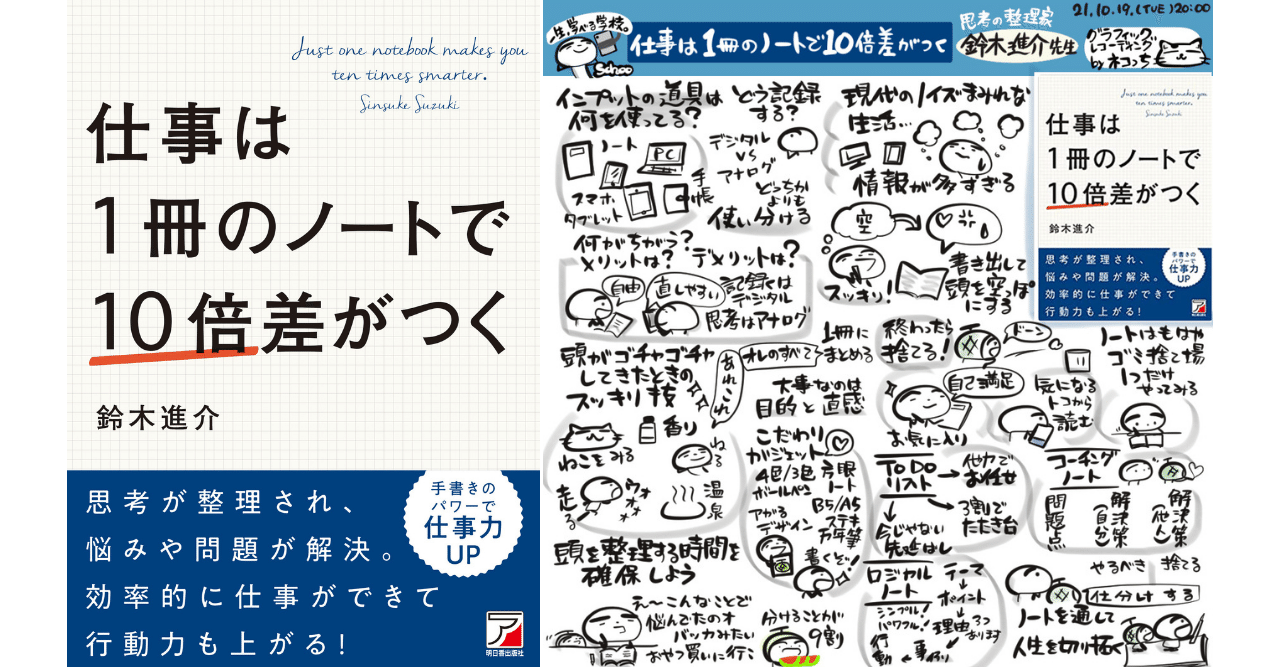 Just one notebook makes you
ten times smarter.
Sinsuke Suzuki
仕事は
1冊のノートで
10倍差がつく
鈴木進介
思考が整理され、
悩みや問題が解決。
効率的に仕事ができて
行動力も上がる!
手書きの
パワーで
仕事力
UP
明日香出版社
一生、学べる学校。
Schoo
仕事は1冊のノートで10倍差がつく
思考の整理家
鈴木進介先生
21.10.19.(TUE)20:00
グラフィック
レコーディング
by ネコっち
インプットの道具は
何を使ってる?
どう記録
する?
ノート
PC
スマホ
タブレット
手帳
デジタル
VS
アナログ
どっちか
よりも
使い分ける
何がちがう?
メリットは? デメリットは?
自由
直しやすい
記録くは
デジタル
思考はアナログ
頭がゴチャゴチャ
してきたときの
スッキリ技
あれこれ
ねこをみる
香り
ねる
走る
ウォォォ
温泉
頭を整理する時間を
確保しよう
え〜こんなことで
悩んでたのオ
バッカみたい
おやつ買いに行こ
現代のノイズまみれな
生活…
情報が多すぎる
空
スッキリ!
書き出して
頭を空っぽ
にする
Just one notebook makes you
ten times smarter.
Sinsuke Suzuki
仕事は
1冊のノートで
10倍差がつく
鈴木進介
思考が整理され、
悩みや問題が解決。
効率的に仕事ができて
行動力も上がる!
手書きの
パワーで
仕事力
UP
オレのすべて
1冊に
まとめる
終わったら
捨てる!
ドーン
ノートはもはや
ゴミ捨て場
1つだけ
やってみる
大事なのは
目的と直感
自己満足
お気に入り
気になる
トコから
読む
こだわり
ガジェット
4色/3色
ボールペン
方眼
ノート
B5/A5
アガる
デザイン
ステキ
万年筆
書くぞ!
分けることが
9割
TODO
リスト
他力で
お任せ
3割で
たたき台
今じゃない
先延ばし
コーチング
ノート
問題点
解決策
(自分)
解決策
(他人)
ロジカル
ノート
シンプル!
パワフル!
テーマ
ポイント
理由
3つ
あります
事例
行動
やるべき
捨てる
仕分けする
ノートを通して
人生を切り拓く